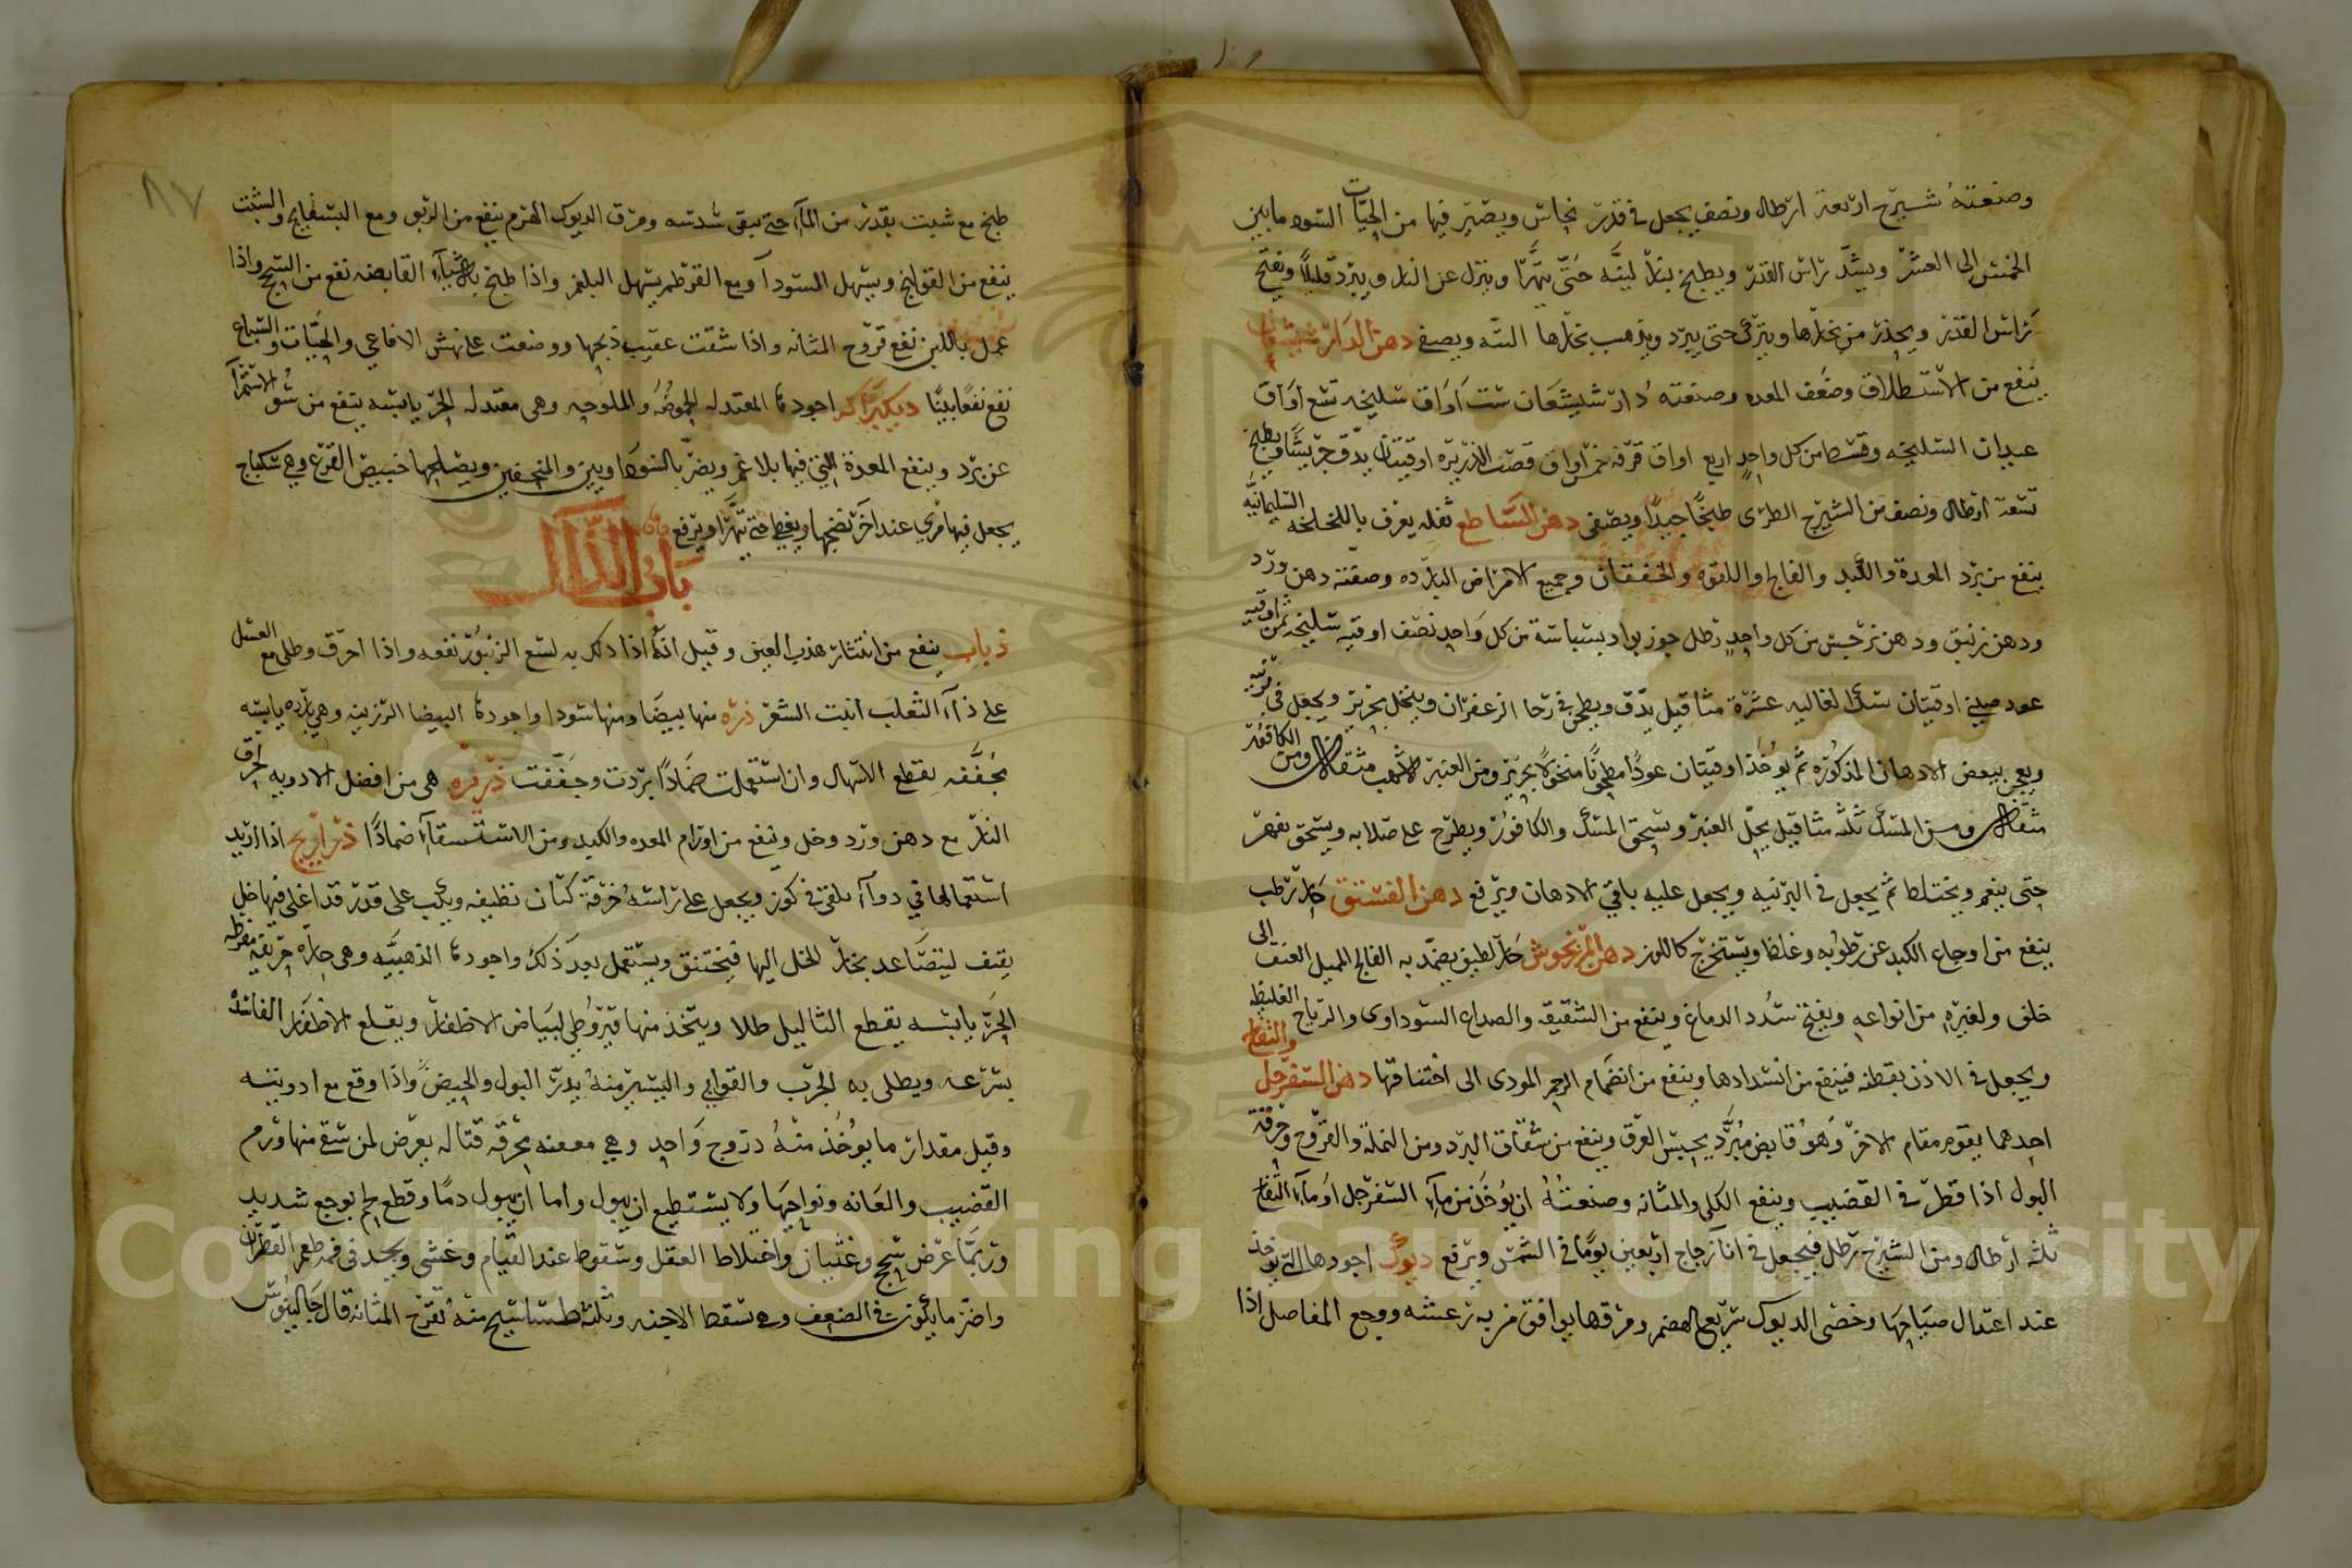 وصنعته شيرج اربعة ارطال ونصف يجعل في قدر نحاس ويصير فيها من الحيات السود ما بين
الخمس الى العشر ويشد راس القدر ويطبخ بنار لينه حتى يتهرا وينزل عن النار ويبرد قليلا ويفتح
راس القدر ويحذر من بخارها ويترك حتى يبرد ويذهب بخارها البته ويصفى دهن الدارشيشعان
ينفع من الاستطلاق وضعف المعده وصنعته دارشيشعان ست اواق سليخه تسع اواق
عيدان السليخه وقسط من كل واحد اربع اواق قرفه خمس اواق قصب الذريره اوقيتان يدق جريشا ويطبخ
تسعة ارطال ونصف من الشيرج الطرى طبخا جيدا ويصفى دهن الساطع ثفله يعرف باللخلخه السليمانيه
ينفع من برد المعدة والكبد والفالج واللقوه والخفقان وجميع الامراض البارده وصفته دهن ورد
ودهن زنبق ودهن نرجس من كل واحد رطل جوز بوا وبسباسة من كل واحد نصف اوقيه سليخه ثمن اوقيه
عود صيني اوقيتان سك الغاليه عشرة مثاقيل يدق ويطحن في رحا الزعفران وينخل بحرير ويجعل في برنيه
ويعجن ببعض الادهان المذكوره ثم يوخذ اوقيتان عودا مطحونا منخولا بحرير ومن العنبر الاشهب مثقال ومن الكافور
مثقال ومن المسك ثلثه مثاقيل يحل العنبر ويسحق المسك والكافور ويطرح على صلابه ويسحق بفهر
حتى ينعم ويختلط ثم يجعل في البرنيه ويجعل عليه باقي الادهان ويرفع دهن الفستق حار رطب
ينفع من اوجاع الكبد عن رطوبه وغلظ ويستخرج كاللوز دهن المرزنجوش حار لطيف يضمد به الفالج المميل العنق الى
خلف ولغيره من انواعه ويفتح سدد الدماغ وينفع من الشقيقه والصداع السوداوى والرياح الغليظه
ويجعل في الاذن بقطنه فينفع من انسدادها وينفع من انضمام الرحم المودى الى اختناقها دهن السفرجل والتفاح
احدهما يقوم مقام الاخر وهو قابض مبرد يحبس العرق وينفع من شقاق البرد ومن النملة والقروح وحرقة
البول اذا قطر في القضيب وينفع الكلى والمثانه وصنعته ان يوخذ من مآء السفرجل او مآء التفاح
ثلثه ارطال ومن الشيرج رطل فيجعل في انا زجاج اربعين يوما في الشمس ويرفع ديوك اجودها التي توخذ
عند اعتدال صياحها وخصى الديوك سريع الهضم ومرقها يوافق من به رعشه ووجع المفاصل اذا
٨٧
طبخ مع شبت بقدر من المآء حتى يبقى سدسه ومرق الديوك الهرم ينفع من الربو ومع البسفايج والشبت
ينفع من القولنج ويسهل السودآ ومع القرطم يسهل البلغم واذا طبخ بالاشيآء القابضه نفع من السحج واذا
عمل باللبن نفع قروح المثانه واذا شقت عقيب ذبحها ووضعت على نهش الافاعي والحيات والسباع
نفع نفعا بينا ديكبراكه اجودها المعتدله الحموضه والملوحه وهى معتدله الحر يابسه ينفع من سو الاستمرآ
عن برد وينفع المعدة التي فيها بلاغم ويضر بالسوداويين والمنحفين ويصلحها خبيص القرع وهي سكباج
يجعل فيها مري عند اخر نضجها ويغطا حتى تتهرا ويرفع
باب الذال
ذباب ينفع من انتثار هدب العين وقيل انه اذا دلك به لسع الزنبور نفعه واذا احرق وطلى مع العسل
على دآء الثعلب انبت الشعر ذره منها بيضا ومنها سودا واجودها البيضا الرزينه وهى بارده يابسه
مجففه يقطع الاسهال وان استعملت ضمادا بردت وجففت ذريره هى من افضل الادويه لحرق
النار مع دهن ورد وخل وينفع من اورام المعده والكبد ومن الاستسقآء ضمادا ذراريح اذا اريد
استعمالها في دوآء يلقى في كوز ويجعل على راسه خرقة كتان نظيفه ويكب على قدر قد اغلى فيها خل
ثقيف ليتصاعد بخار الخل اليها فيختنق ويستعمل بعد ذلك واجودها الذهبيه وهى حاره حريفه مفرطه
الحر يابسه يقطع الثاليل طلا ويتخذ منها قيروطي لبياض الاظفار ويقلع الاظفار الفاسده
بسرعه ويطلى به الجرب والقوابي واليسير منه يدر البول والحيض واذا وقع مع ادويته
وقيل مقدار ما يوخذ منه دروج واحد وهي معفنه محرقه قتاله يعرض لمن سقي منها ورم
القضيب والعانه ونواحيها ولا يستطيع ان يبول واما ان يبول دما وقطع لحم بوجع شديد
وربما عرض سحج وغثيان واختلاط العقل وسقوط عند القيام وغشى ويجد في فمه طعم القطران
واضر ما يكون في الضعف وهي تسقط الاجنه وثلثة طساسيج منه تقرح المثانه قال جالينوس
Copyright © King Saud University